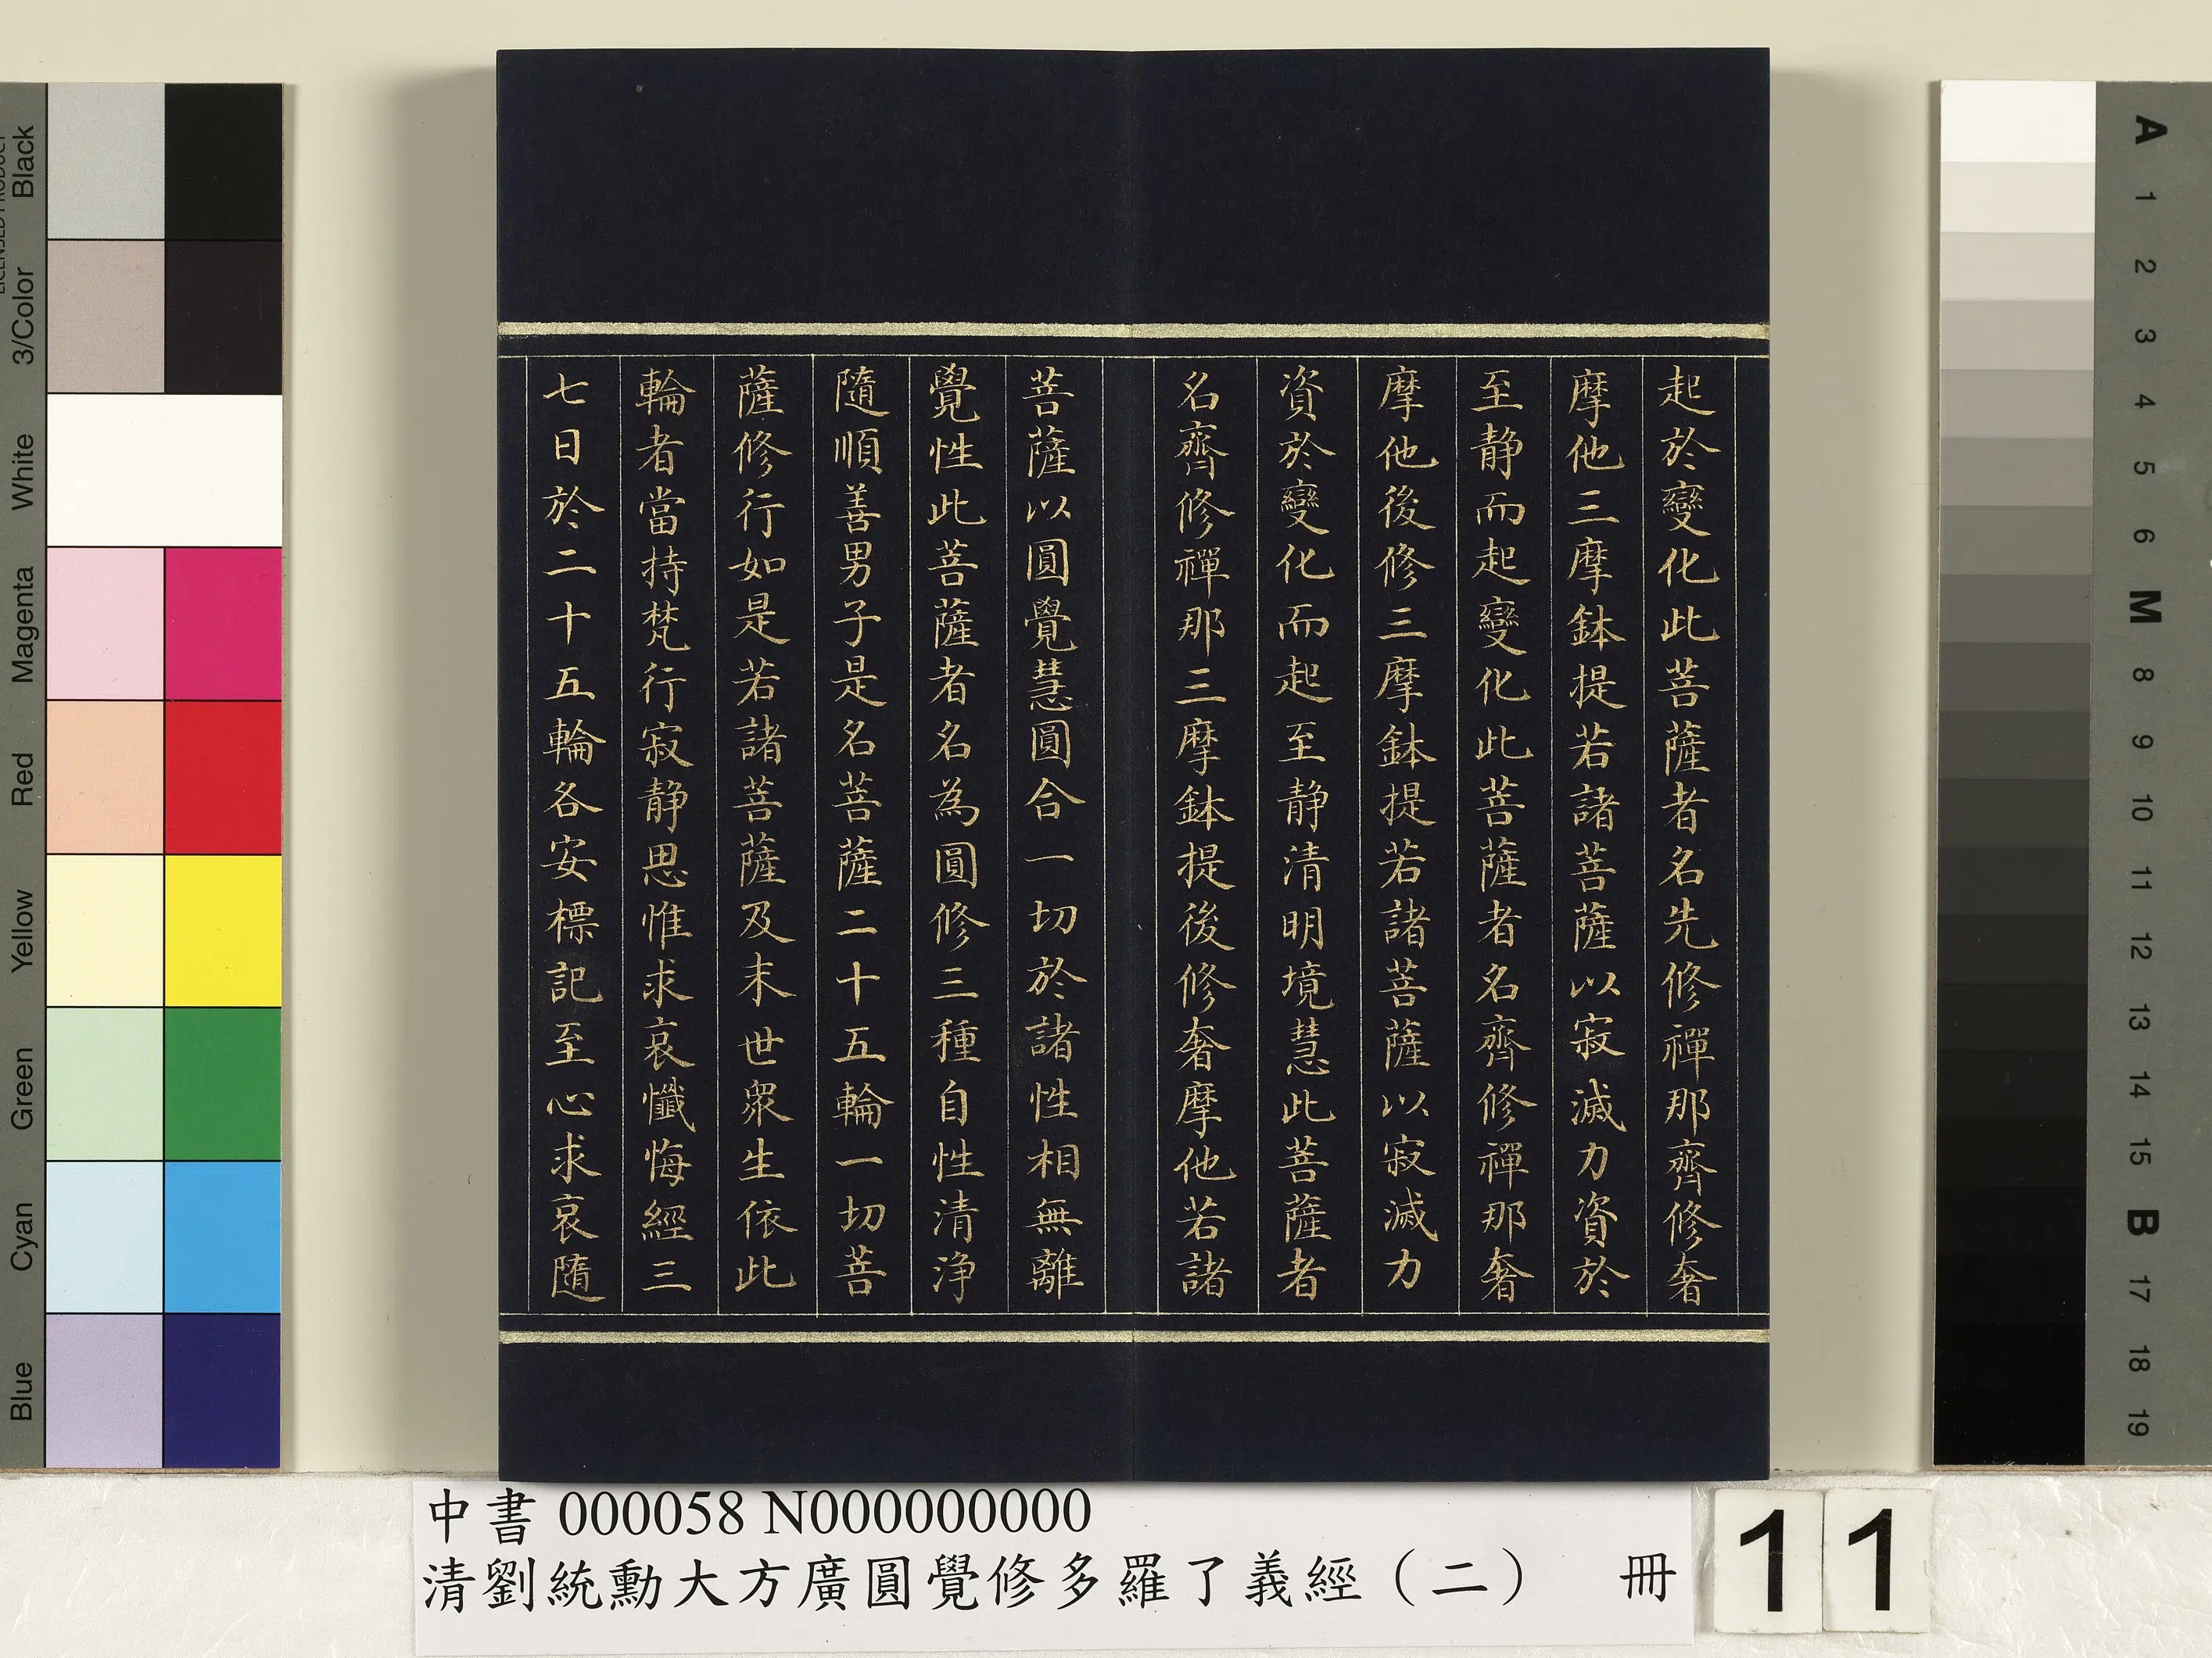 起於變化此菩薩者名先修禪那齊修奢
摩他三摩鉢提若諸菩薩以寂滅力資於
至静而起變化此菩薩者名齊修禪那奢
摩他後修三摩鉢提若諸菩薩以寂滅力
資於變化而起至静清明境慧此菩薩者
名齊修禪那三摩鉢提後修奢摩他若諸
菩薩以圓覺慧圓合一切於諸性相無離
覺性此菩薩者名為圓修三種自性清淨
隨順善男子是名菩薩二十五輪一切菩
薩修行如是若諸菩薩及末世眾生依此
輪者當持梵行寂静思惟求哀懺悔經三
七日於二十五輪各安標記至心求哀隨
中書 000058 N000000000
清劉統勳大方廣圓覺修多羅了義經（二） 冊
11
Black
3/Color
White
Magenta
Red
Yellow
Green
Cyan
Blue
LICENSED PRODUCT
A
1
2
3
4
5
6
M
8
9
10
11
12
13
14
15
B
17
18
19